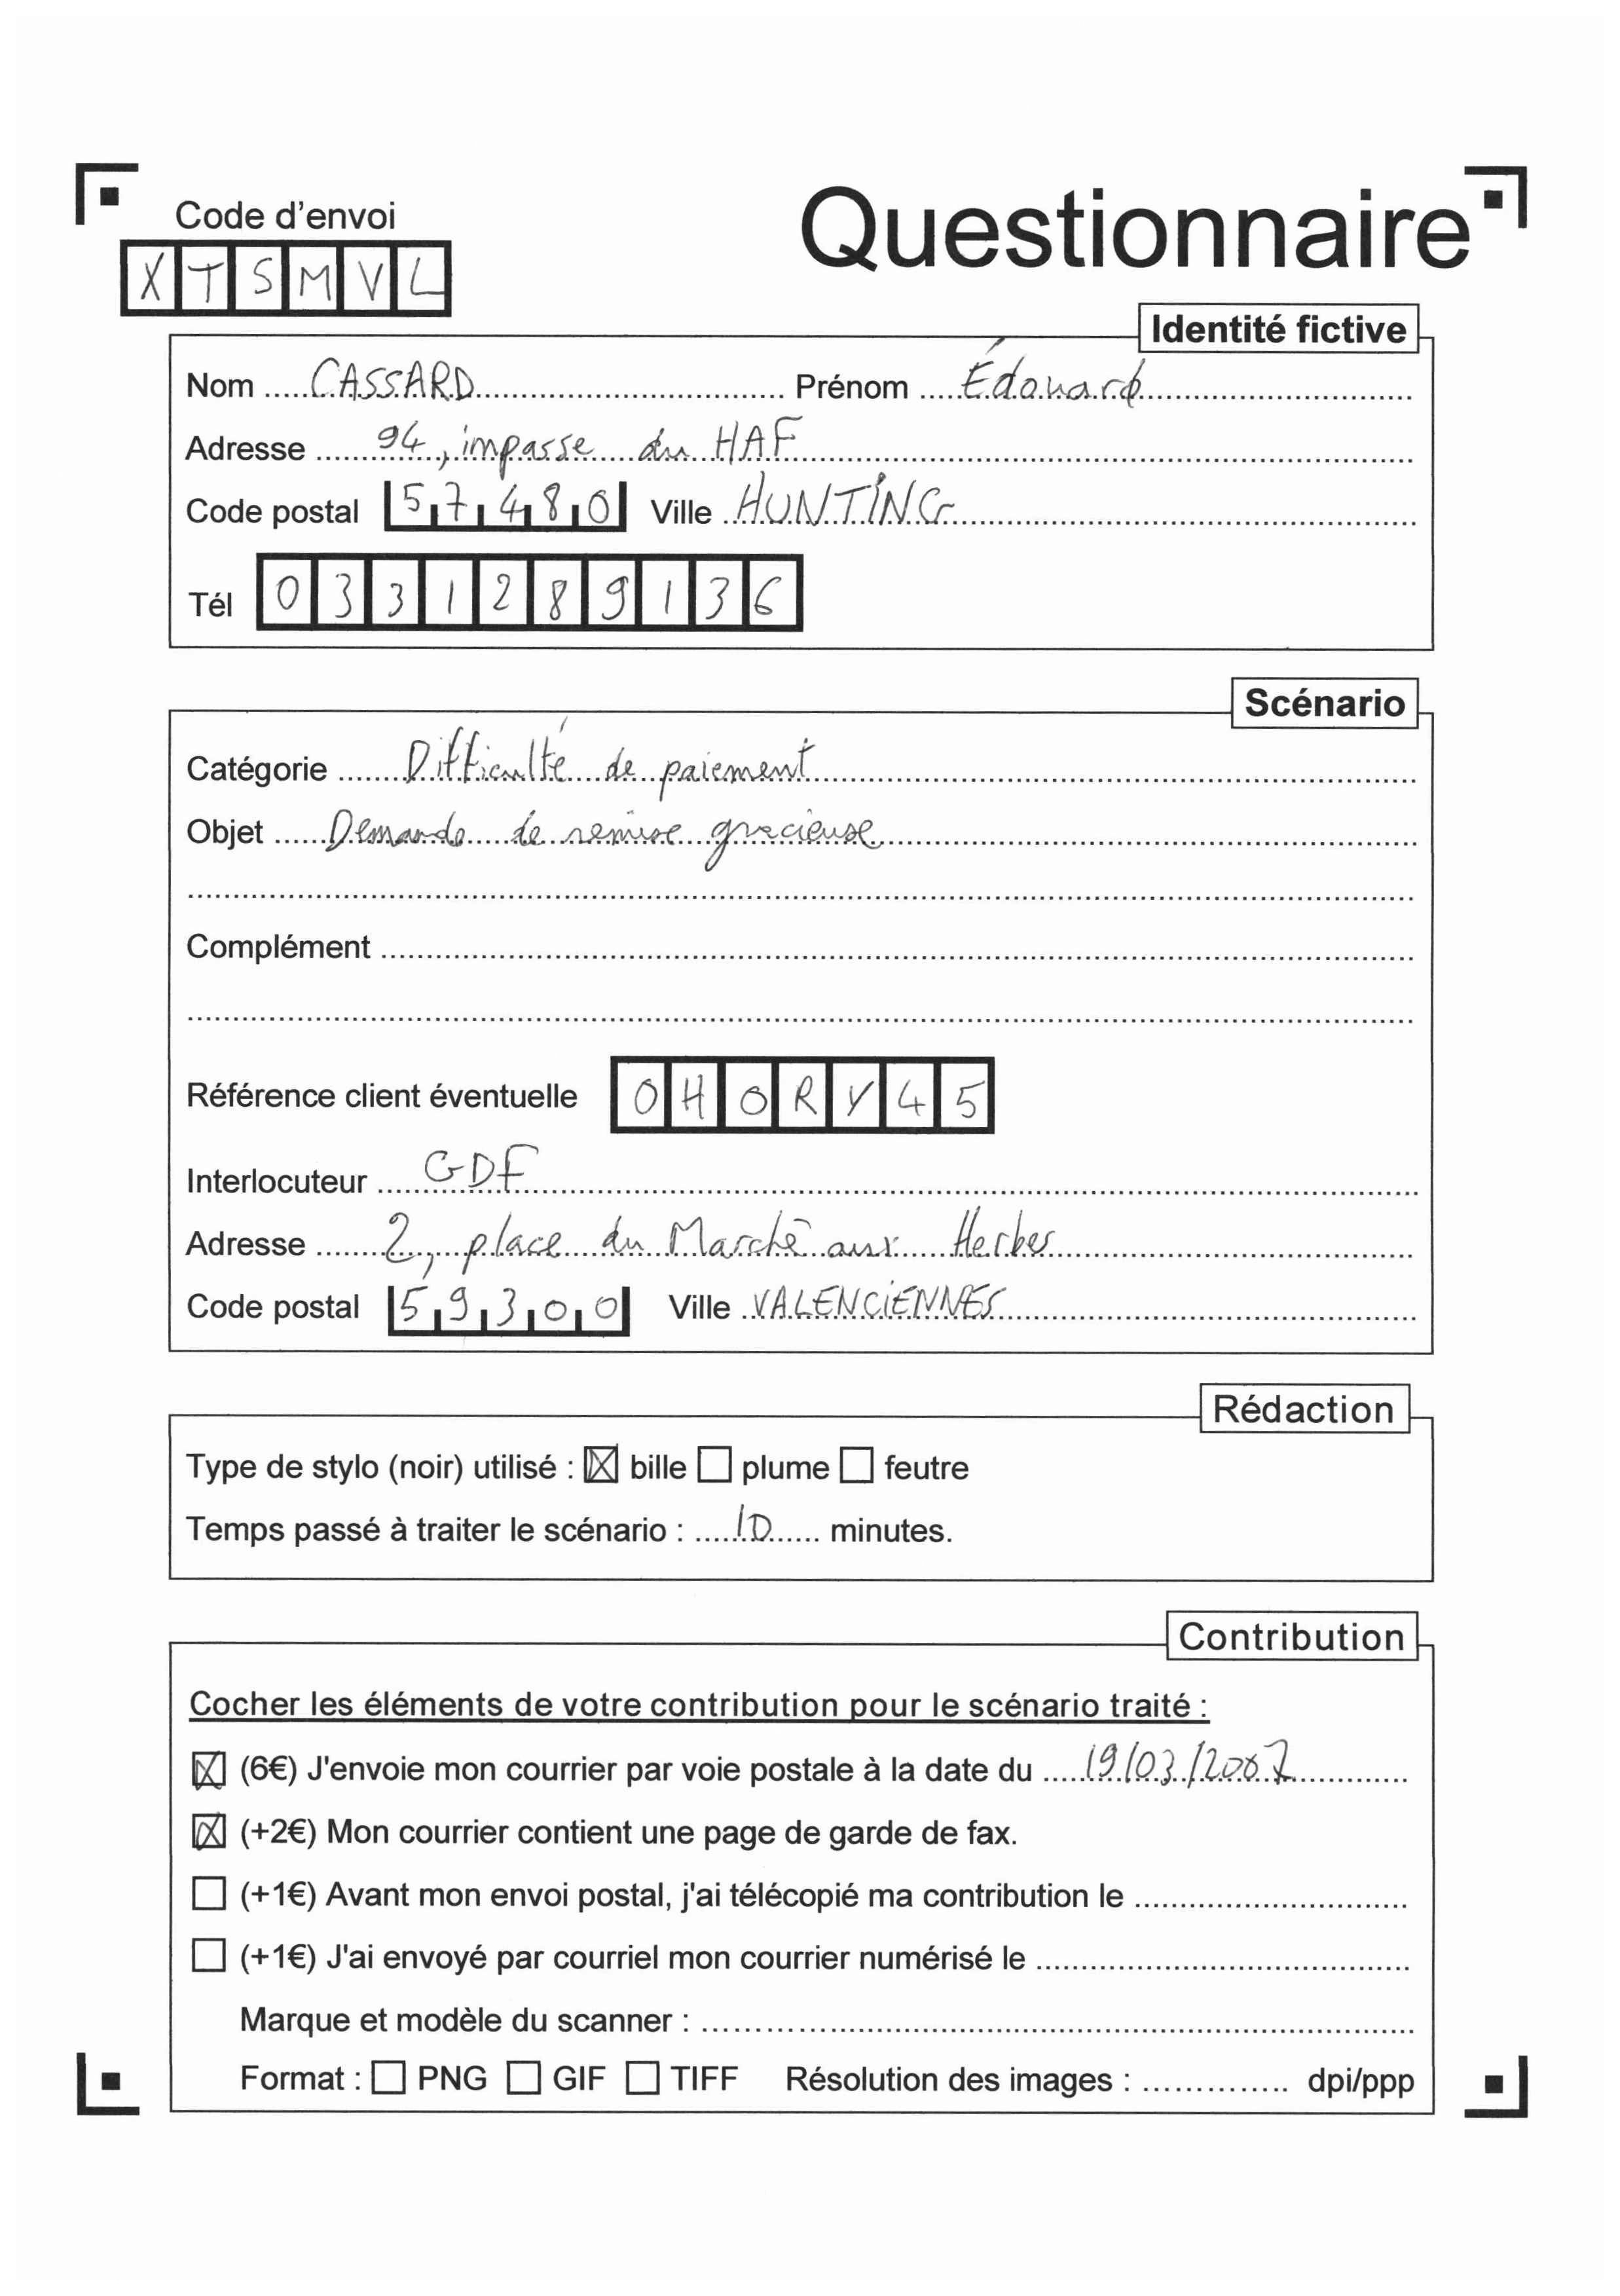 Code d'envoi
Questionnaire
XTSMVL
Identité fictive
Nom ..... CASSARD ..... Prénom ..... Édouard .....
Adresse ..... 94, impasse du HAF .....
Code postal 57480 Ville HUNTING .....
Tél 0331289136
Scénario
Catégorie ..... Difficulté de paiement .....
Objet ..... Demande de remise gracieuse .....
Complément .....
Référence client éventuelle OHORY45
Interlocuteur ..... GDF .....
Adresse ..... 2, place du Marché aux Herbes .....
Code postal 59300 Ville VALENCIENNES .....
Rédaction
Type de stylo (noir) utilisé : ☒ bille ☐ plume ☐ feutre
Temps passé à traiter le scénario : ..... 10 ..... minutes.
Contribution
Cocher les éléments de votre contribution pour le scénario traité :
☒ (6€) J'envoie mon courrier par voie postale à la date du ..... 19/03/2007 .....
☒ (+2€) Mon courrier contient une page de garde de fax.
☐ (+1€) Avant mon envoi postal, j'ai télécopié ma contribution le .....
☐ (+1€) J'ai envoyé par courriel mon courrier numérisé le .....
Marque et modèle du scanner : .....
Format : ☐ PNG ☐ GIF ☐ TIFF Résolution des images : ..... dpi/ppp